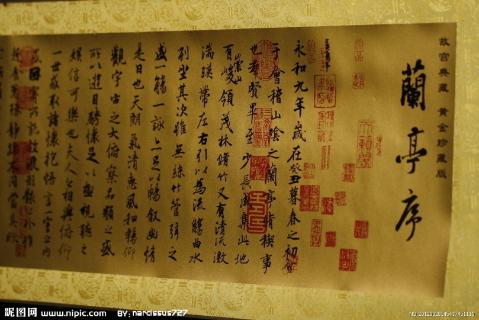 故宫典藏 黄金珍藏版
蘭亭序
永和九年歲在癸丑暮春之初會
于會稽山陰之蘭亭脩稧事
也群賢畢至少長咸集此地
有崇山峻領茂林脩竹又有清流激
湍暎帶左右引以為流觴曲水
列坐其次雖無絲竹管弦之
盛一觴一詠亦足以暢敘幽情
是日也天朗氣清惠風和暢仰
觀宇宙之大俯察品類之盛
所以遊目騁懷足以極視聽之
娛信可樂也夫人之相與俯仰
一世或取諸懷抱悟言一室之內
或因寄所託放浪形骸之外雖
趣舍萬殊靜躁不同當其欣
昵图网 www.nipic.com BY: narcissus727